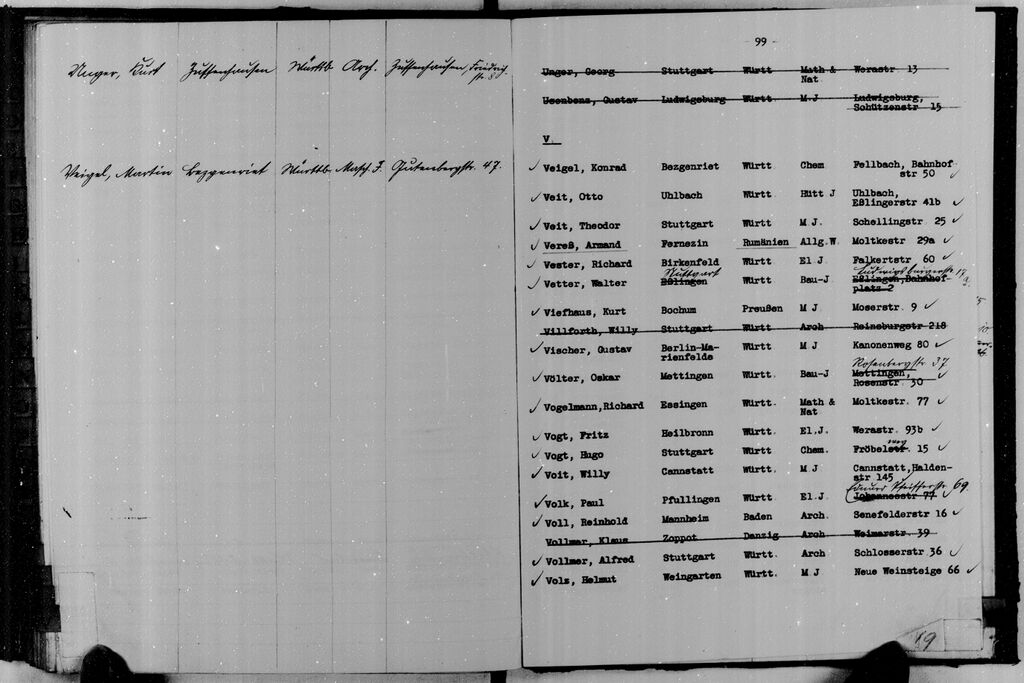 Unger, Kurt Zuffenhausen Württb. Arch. Zuffenhausen, Friedrich-
str. 8
Veigel, Martin Bezgenriet Württb. Masch. I. Gutenbergstr. 47.
- 99 -
Unger, Georg Stuttgart Württ Math & Werastr. 13
Nat
Usenbenz, Gustav Ludwigsburg Württ M.J Ludwigsburg,
Schützenstr 15
V.
✓ Veigel, Konrad Bezgenriet Württ Chem Fellbach, Bahnhof-
str 50 ✓
✓ Veit, Otto Uhlbach Württ. Hütt J Uhlbach,
Eßlingerstr 41b ✓
✓ Veit, Theodor Stuttgart Württ M J. Schellingstr. 25 ✓
✓ Vereß, Armand Fernezin Rumänien Allg.W. Moltkestr 29a ✓
✓ Vester, Richard Birkenfeld Württ El J. Falkertstr 60 ✓
Stuttgart Ludwigsburgerstr.
✓ Vetter, Walter Eßlingen Württ Bau-J Eßlingen,Bahnhof-
platz 2
✓ Viefhaus, Kurt Bochum Preußen M J Moserstr. 9 ✓
Villforth, Willy Stuttgart Württ Arch Reinsburgstr 218
✓ Vischer, Gustav Berlin-Ma- Württ M J Kanonenweg 80 ✓
rienfelde
Rosenbergstr 37
✓ Völter, Oskar Mettingen Württ. Bau-J Mettingen, ✓
Rosenstr. 30
✓ Vogelmann,Richard Essingen Württ. Math & Moltkestr. 77 ✓
Nat
✓ Vogt, Fritz Heilbronn Württ. El.J. Werastr. 93b ✓
weg
✓ Vogt, Hugo Stuttgart Württ Chem. Fröbelstr. 15 ✓
✓ Voit, Willy Cannstatt Württ. M J Cannstatt,Halden-
str 145
Eduard Pfeifferstr. 69.
✓ Volk, Paul Pfullingen Württ El.J Johannesstr 77
✓ Voll, Reinhold Mannheim Baden Arch. Senefelderstr 16 ✓
Vollmar, Klaus Zoppot Danzig Arch Weimarstr. 39
✓ Vollmer, Alfred Stuttgart Württ. Arch Schlosserstr 36 ✓
✓ Volz, Helmut Weingarten Württ. M J Neue Weinsteige 66 ✓